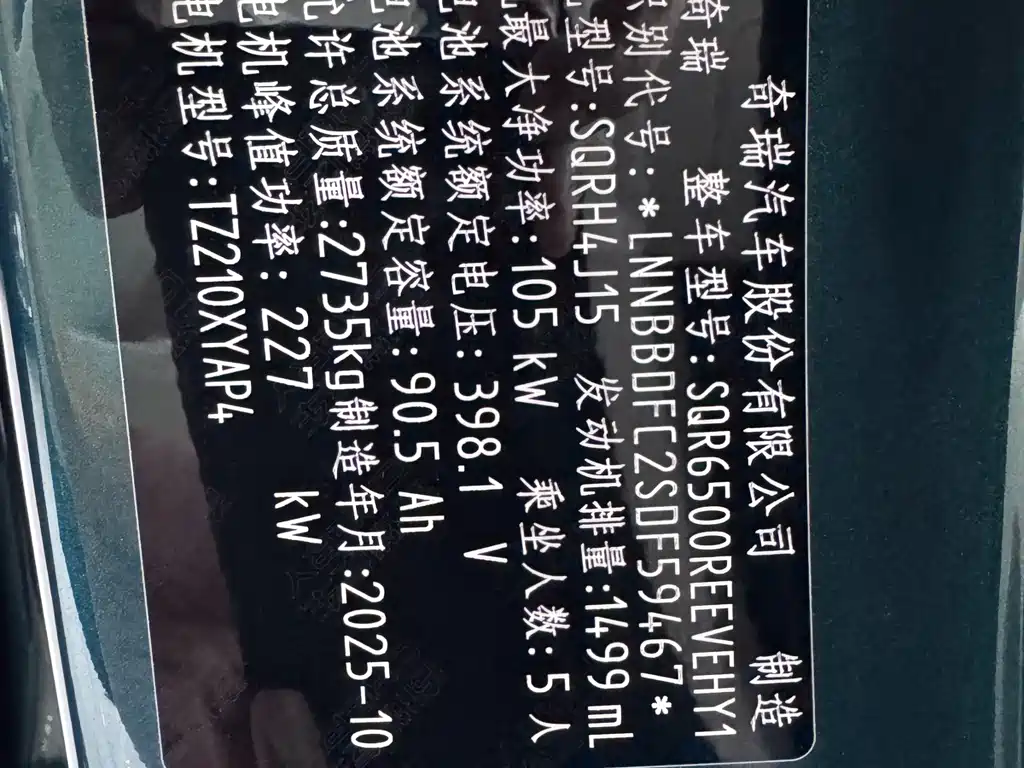 奇瑞汽车股份有限公司 制造
奇瑞 整车型号:SQR6500REEVEHY1
识别代号:*LNNBBDFC2SDF59467*
型号:SQRH4J15 发动机排量:1499 mL
最大净功率:105 kW 乘坐人数:5 人
电池系统额定电压:398.1 V
电池系统额定容量:90.5 Ah
允许总质量:2735kg 制造年月:2025-10
电机峰值功率: 227 kW
电机型号:TZ210XYAP4